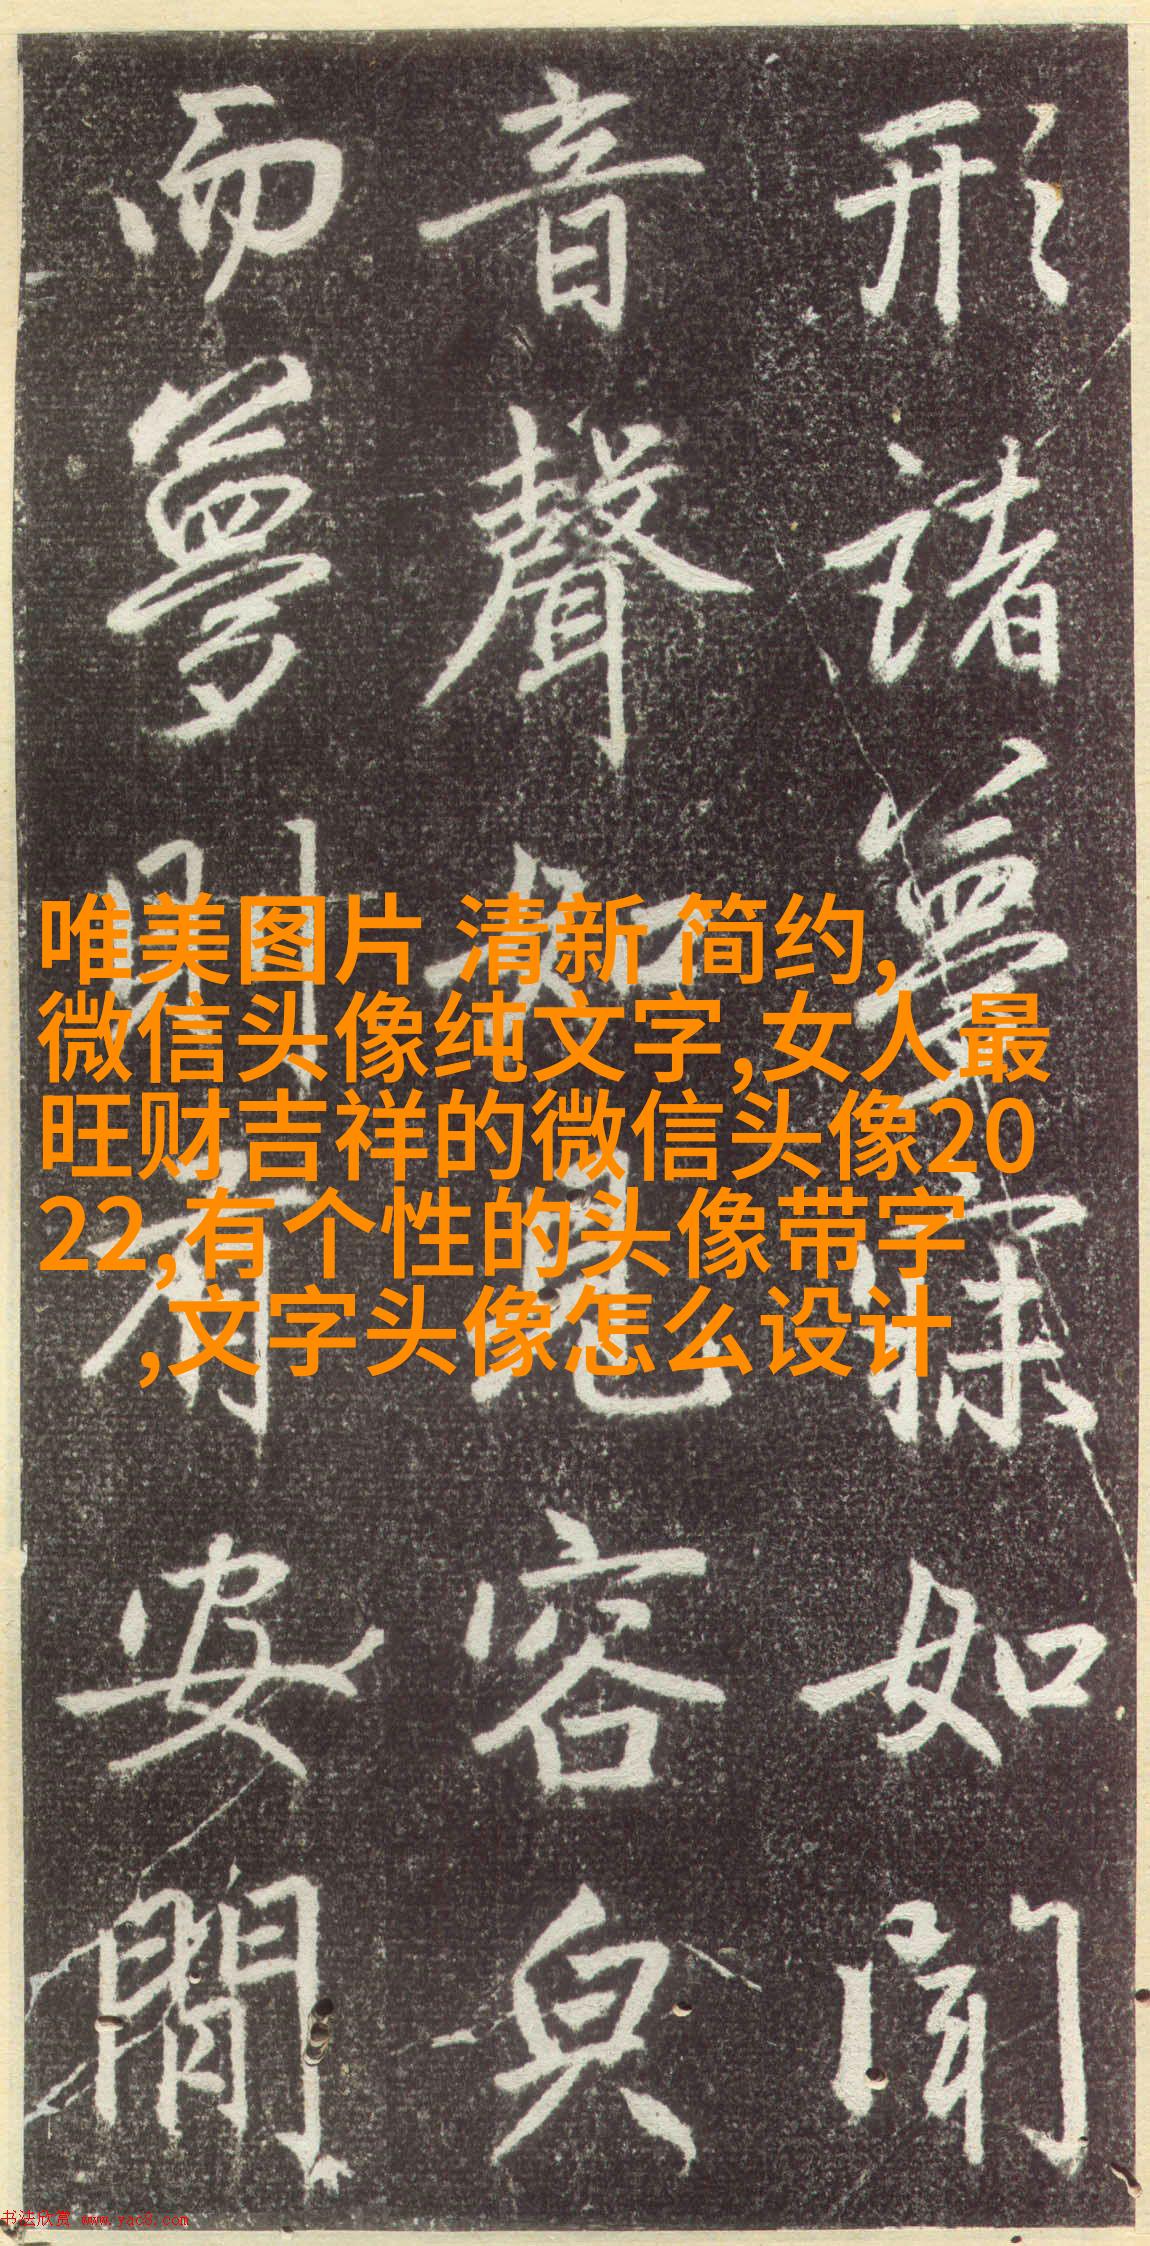 形諸夢寐如聞
音聲如見容皃
而夢則有安閒
唯美图片 清新 简约,
微信头像纯文字,女人最
旺财吉祥的微信头像20
22,有个性的头像带字
,文字头像怎么设计
书法欣赏 www.yac8.com